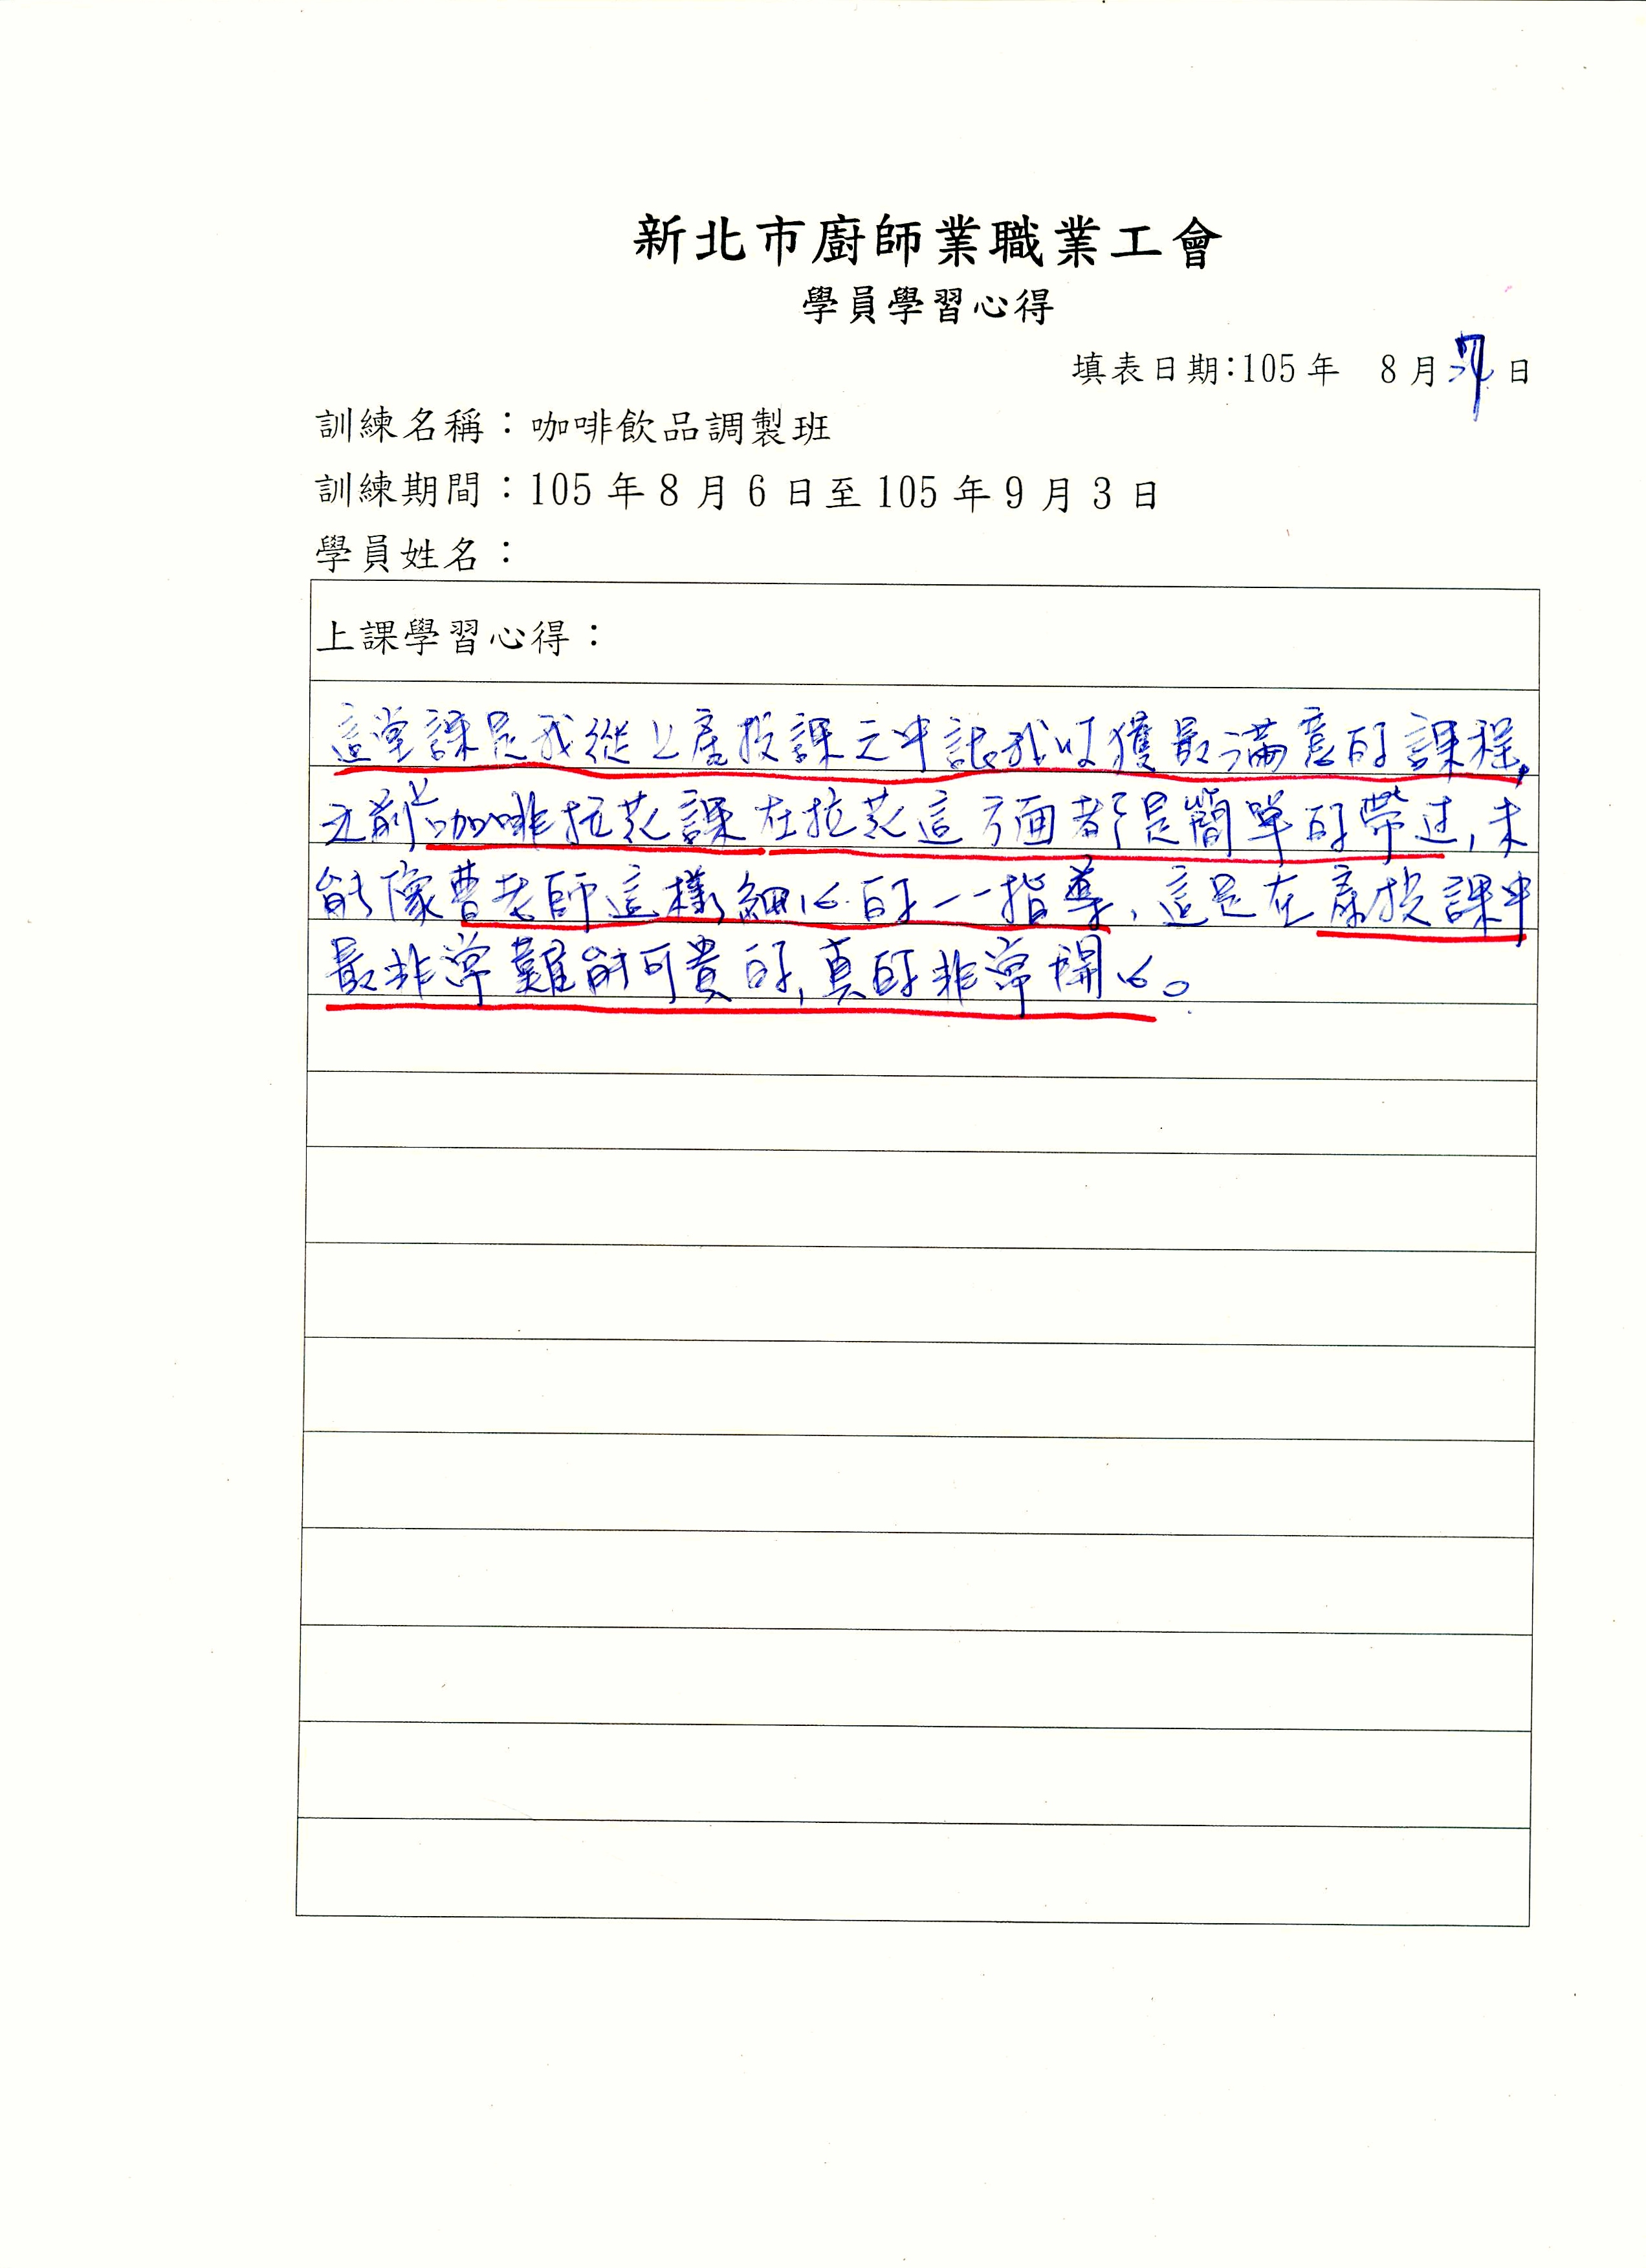 新北市廚師業職業工會
學員學習心得
填表日期:105年 8月 日
訓練名稱：咖啡飲品調製班
訓練期間：105年8月6日至105年9月3日
學員姓名：
上課學習心得：
這堂課是我從上產投課之中讓我收獲最滿意的課程,
之前上咖啡拉花課在拉花這方面都是簡單的帶过,未
能像曹老師這樣細心的一一指導,這是在產投課中
最非常難能可貴的,真的非常開心。